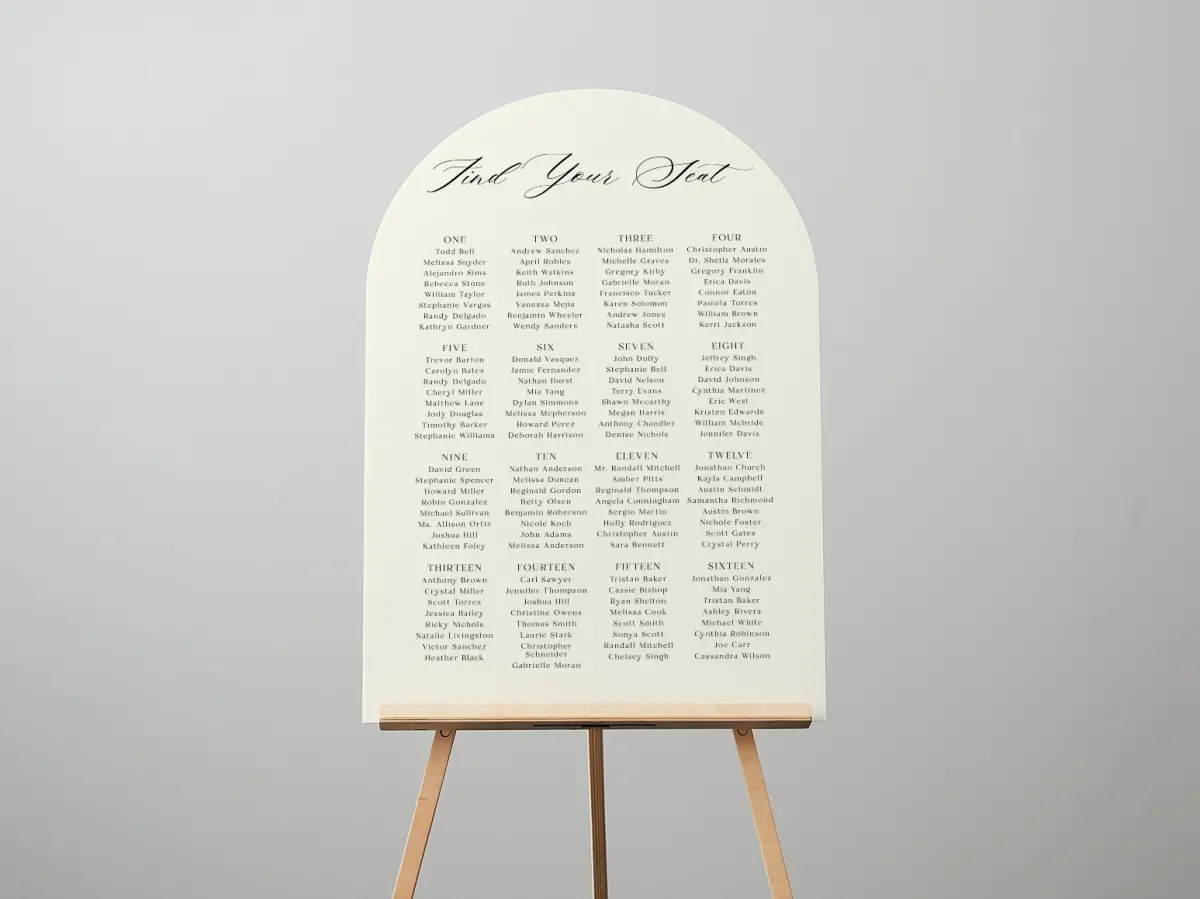 Find Your Seat
ONE
Todd Bell
Melissa Snyder
Alejandro Sims
Rebecca Stone
William Taylor
Stephanie Vargas
Randy Delgado
Kathryn Gardner
TWO
Andrew Sanchez
April Robles
Keith Watkins
Ruth Johnson
James Perkins
Vanessa Mejia
Benjamin Wheeler
Wendy Sanders
THREE
Nicholas Hamilton
Michelle Graves
Gregory Kirby
Gabrielle Moran
Francisco Tucker
Karen Solomon
Andrew Jones
Natasha Scott
FOUR
Christopher Austin
Dr. Sheila Morales
Gregory Franklin
Erica Davis
Connor Eaton
Pamela Torres
William Brown
Kerri Jackson
FIVE
Trevor Barton
Carolyn Bates
Randy Delgado
Cheryl Miller
Matthew Lane
Jody Douglas
Timothy Barker
Stephanie Williams
SIX
Donald Vasquez
Jamie Fernandez
Nathan Hurst
Mia Yang
Dylan Simmons
Melissa Mcpherson
Howard Perez
Deborah Harrison
SEVEN
John Duffy
Stephanie Bell
David Nelson
Terry Evans
Shawn Mccarthy
Megan Harris
Anthony Chandler
Denise Nichols
EIGHT
Jeffrey Singh
Erica Davis
David Johnson
Cynthia Martinez
Eric West
Kristen Edwards
William Mcbride
Jennifer Davis
NINE
David Green
Stephanie Spencer
Howard Miller
Robin Gonzalez
Michael Sullivan
Ms. Allison Ortiz
Joshua Hill
Kathleen Foley
TEN
Nathan Anderson
Melissa Duncan
Reginald Gordon
Betty Olsen
Benjamin Roberson
Nicole Koch
John Adams
Melissa Anderson
ELEVEN
Mr. Randall Mitchell
Amber Pitts
Reginald Thompson
Angela Cunningham
Sergio Martin
Holly Rodriguez
Christopher Austin
Sara Bennett
TWELVE
Jonathan Church
Kayla Campbell
Austin Schmidt
Samantha Richmond
Austin Brown
Nichole Foster
Scott Gates
Crystal Perry
THIRTEEN
Anthony Brown
Crystal Miller
Scott Torres
Jessica Bailey
Ricky Nichols
Natalie Livingston
Victor Sanchez
Heather Black
FOURTEEN
Carl Sawyer
Jennifer Thompson
Joshua Hill
Christine Owens
Thomas Smith
Laurie Stark
Christopher
Schneider
Gabrielle Moran
FIFTEEN
Tristan Baker
Cassie Bishop
Ryan Shelton
Melissa Cook
Scott Smith
Sonya Scott
Randall Mitchell
Chelsey Singh
SIXTEEN
Jonathan Gonzalez
Mia Yang
Tristan Baker
Ashley Rivera
Michael White
Cynthia Robinson
Joe Carr
Cassandra Wilson